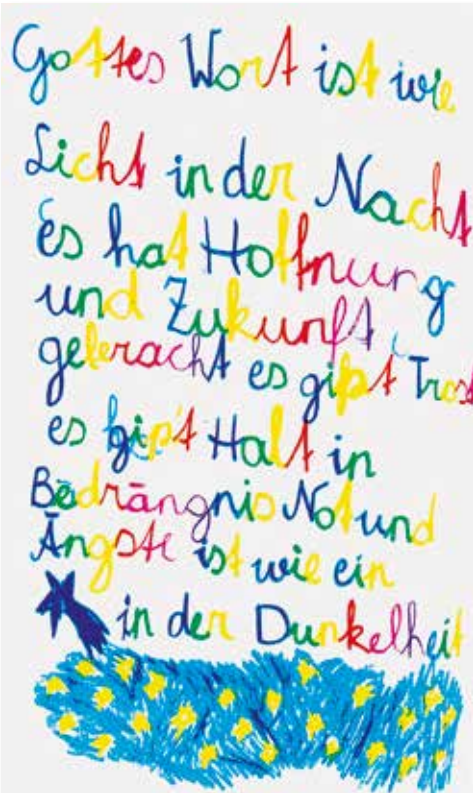 Gottes Wort ist wie
Licht in der Nacht
Es hat Hoffnung
und Zukunft
gebracht es gipt Trost
es gipt Halt in
Bedrängnis Not und
Ängste ist wie ein
in der Dunkelheit